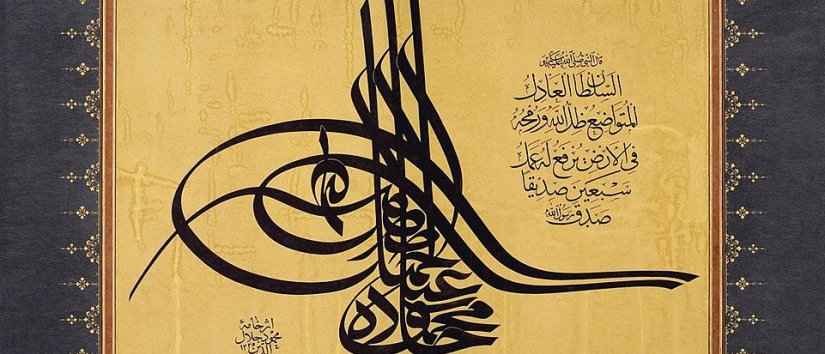 قال النبي صلى الله عليه وسلم
السلطان العادل
المتواضع ظل الله ورمحه
في الارض يرفع له عمل
سبعين صديقا
صدق رسول الله
محمود
اثر خامه
محمود جلال
الدين